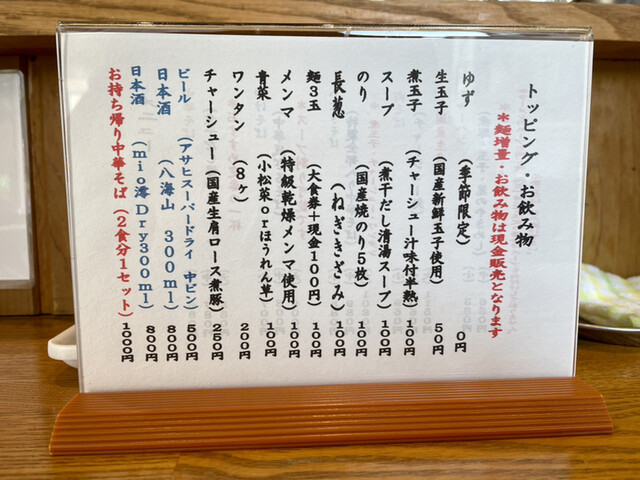 トッピング・お飲み物
＊麺増量・お飲み物は現金販売となります
ゆず （季節限定） 0円
生玉子 （国産新鮮玉子使用） 50円
煮玉子 （チャーシュー汁味付半熟） 100円
スープ （煮干だし清湯スープ） 100円
のり （国産焼のり5枚） 100円
長葱 （ねぎきざみ） 100円
麺3玉 （大食券＋現金100円） 100円
メンマ （特級乾燥メンマ使用） 100円
青菜 （小松菜orほうれん草） 100円
ワンタン （8ヶ） 200円
チャーシュー （国産生肩ロース煮豚） 250円
ビール （アサヒスーパードライ 中ビン） 500円
日本酒 （八海山 300ml） 800円
日本酒 （mio澪Dry300ml） 800円
お持ち帰り中華そば （2食分1セット） 1000円